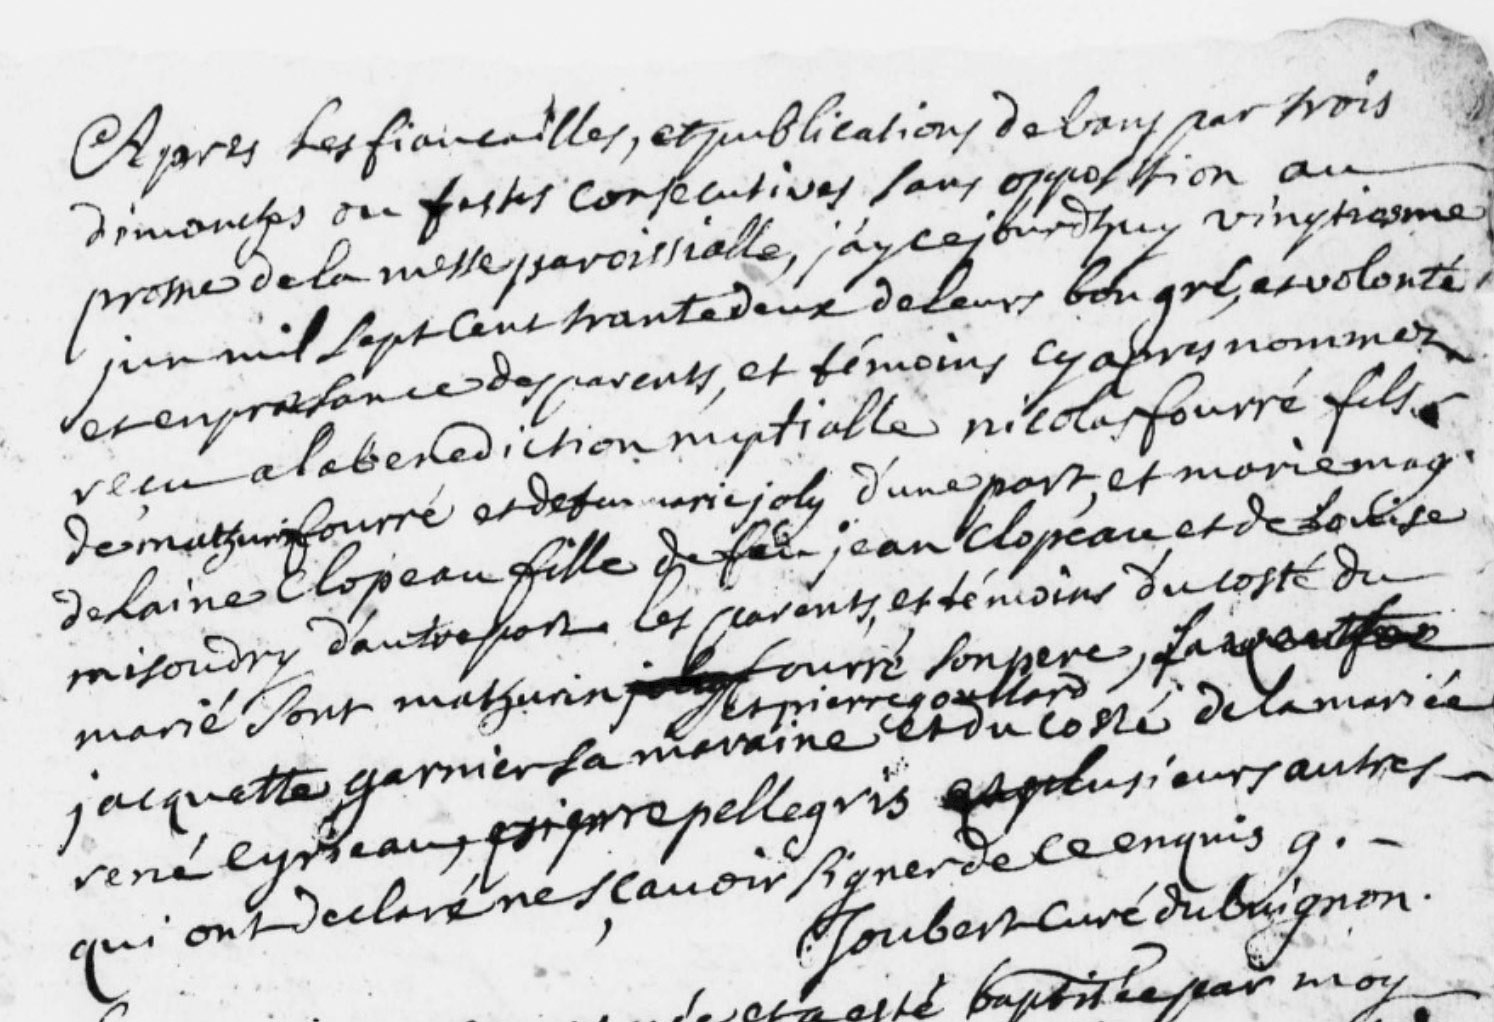 Apres les fiancailles, et publications de bans par trois
dimanches ou festes consecutives sans opposition au
prosne de la messe paroissialle, j'ay cejourd'huy vingtiesme
juin mil sept cent trante deux de leurs bon gré, et volonté
et en presance des parents, et témoins cy apres nommez
reçu a la benediction nuptialle nicolas fourré fils
de mathurin fourré et de feu marie joly d'une part, et marie mag
delaine Clopeau fille de feu jean Clopeau et de Louise
misoudry d'autre part. les parents, et témoins du costé du
marié sont mathurin fourré son pere,
et pierre goullard
jacquette garnier sa maraine et du costé de la mariée
rené Cyrieau, pierre pellegris et plusieurs autres
qui ont declaré ne sçavoir signer de ce enquis g.
Joubert Curé du buignon.
et a esté baptisée par moy